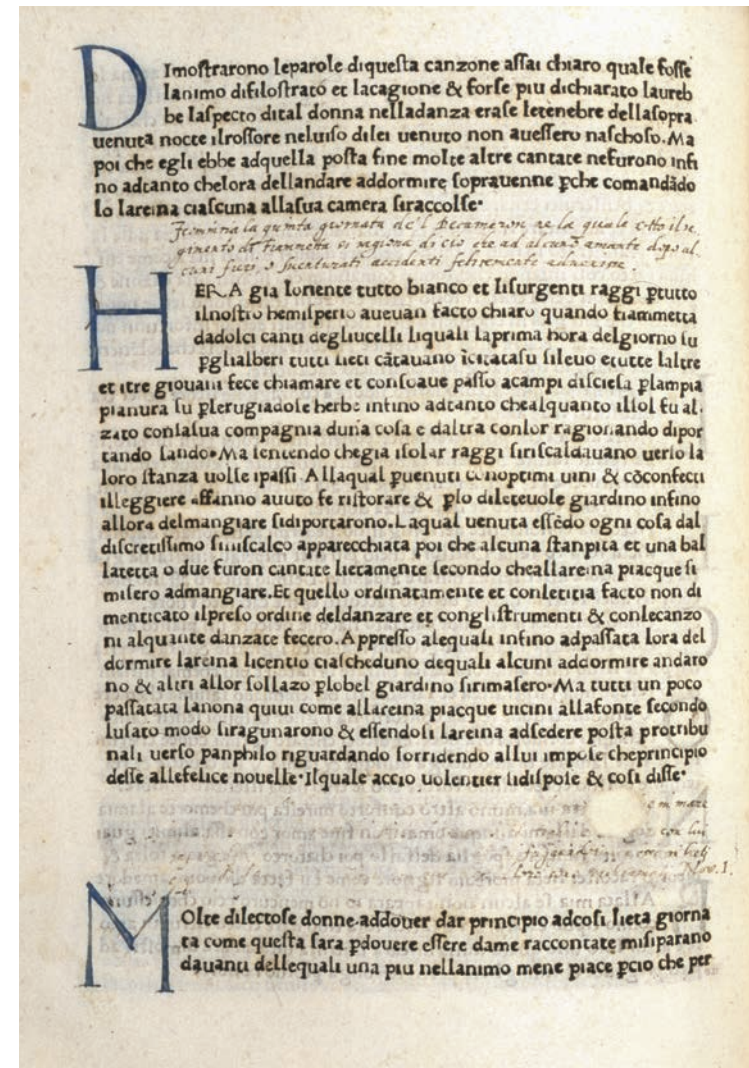 DImostrarono leparole diquesta canzone assai chiaro quale fosse
lanimo difilostrato et lacagione & forse piu dichiarato laureb
be laspecto dital donna nelladanza erase letenebre dellasopra
uenuta nocte ilrossore neluiso dilei uenuto non auessero naschoso. Ma
poi che egli ebbe adquella posta fine molte altre cantate nefurono infi
no adtanto chelora dellandare addormire soprauenne ꝑche comandādo
lo lareina ciascuna allasua camera siraccolse.
la quinta giornata de'l Decameron ne la quale sotto il re,
gimento di Fiammetta si ragiona di cio che ad alcuno amante dopo al,
cuni fieri, o suenturati accidenti felicemente aduenisse.
HERA gia loriente tutto bianco et lisurgenti raggi ꝑtutto
ilnostro hemisperio aueuan facto chiaro quando fiammetta
dadolci canti degliucelli liquali laprima hora delgiorno su
ꝑglialberi tutti lieti cātauano īcitatasu sileuo etutte laltre
et itre giouani fece chiamare et consoaue passo acampi disciesa ꝑlampia
pianura su ꝑlerugiadose herbe infino adtanto chealquanto ilsol fu al,
zato conlasua compagnia duna cosa e daltra conlor ragionando dipor
tando sando. Ma sentendo chegia isolar raggi siriscaldauano uerso la
loro stanza uolse ipassi. Allaqual ꝑuenuti conoptimi uini & cōconfecti
illeggiere affanno auuto fe ristorare & ꝑlo dileteuole giardino infino
allora delmangiare sidiportarono. Laqual uenuta essēdo ogni cosa dal
discretissimo siniscalco apparecchiata poi che alcuna stanpita et una bal
latetta o due furon cantate lietamente secondo cheallareina piacque si
misero admangiare. Et quello ordinatamente et conletitia facto non di
menticato ilpreso ordine deldanzare et conglistrumenti & conlecanzo
ni alquante danzate fecero. Appresso alequali infino adpassata lora del
dormire lareina licentio ciascheduno dequali alcuni addormire andaro
no & altri allor sollazo ꝑlobel giardino sirimasero. Ma tutti un poco
passatata lanona quiui come allareina piacque uicini allafonte secondo
lusato modo siragunarono & essendosi lareina adsedere posta protribu
nali uerso panphilo riguardando sorridendo allui impose cheprincipio
desse allefelice nouelle. Ilquale accio uolentier sidispose & cosi disse.
in mare
con lui
Nov. 1.
MOlte dilectose donne. addouer dar principio adcosi lieta giorna
ta come questa sara ꝑdouere essere dame raccontate misiparano
dauanti dellequali una piu nellanimo mene piace ꝑcio che per